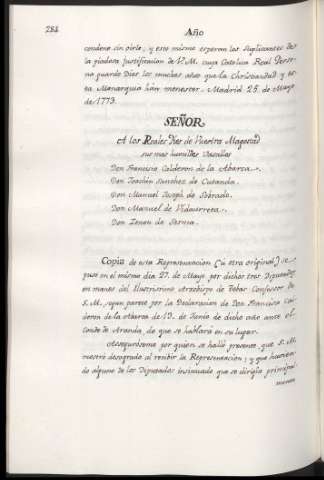 284
Año
condena sin oirle; y esto mismo esperan los Suplicantes de
la piadosa justificacion de V. M. cuya Catolica Real Perso-
na guarde Dios los muchos años que la Christiandad y es-
ta Monarquia han menester. Madrid 25. de Mayo
de 1773.
SEÑOR
A los Reales Pies de Vuestra Magestad
sus mas humildes Vasallos
Don Francisco Calderon de la Abarca.
Don Joachin Sanchez de Cutanda.
Don Manuel Joseph de Sobrado.
Don Manuel de Vidaurreta.
Don Zenon de Sesma.
Copia de esta Representacion (ú otra original) se
puso en el mismo dia 27. de Mayo por dichos tres Diputados
en manos del Ilustrisimo Arzobispo de Tebas Confesor de
S. M. segun parece por la Declaracion de Don Francisco Cal-
deron de la Abarca de 15. de Junio de dicho año ante el
Conde de Aranda, de que se hablará en su lugar.
Asegurósenos por quien se halló presente que S. M.
mostró desagrado al recibir la Representacion; y que havien-
do alguno de los Diputados insinuado que se dirigia principal-
mente